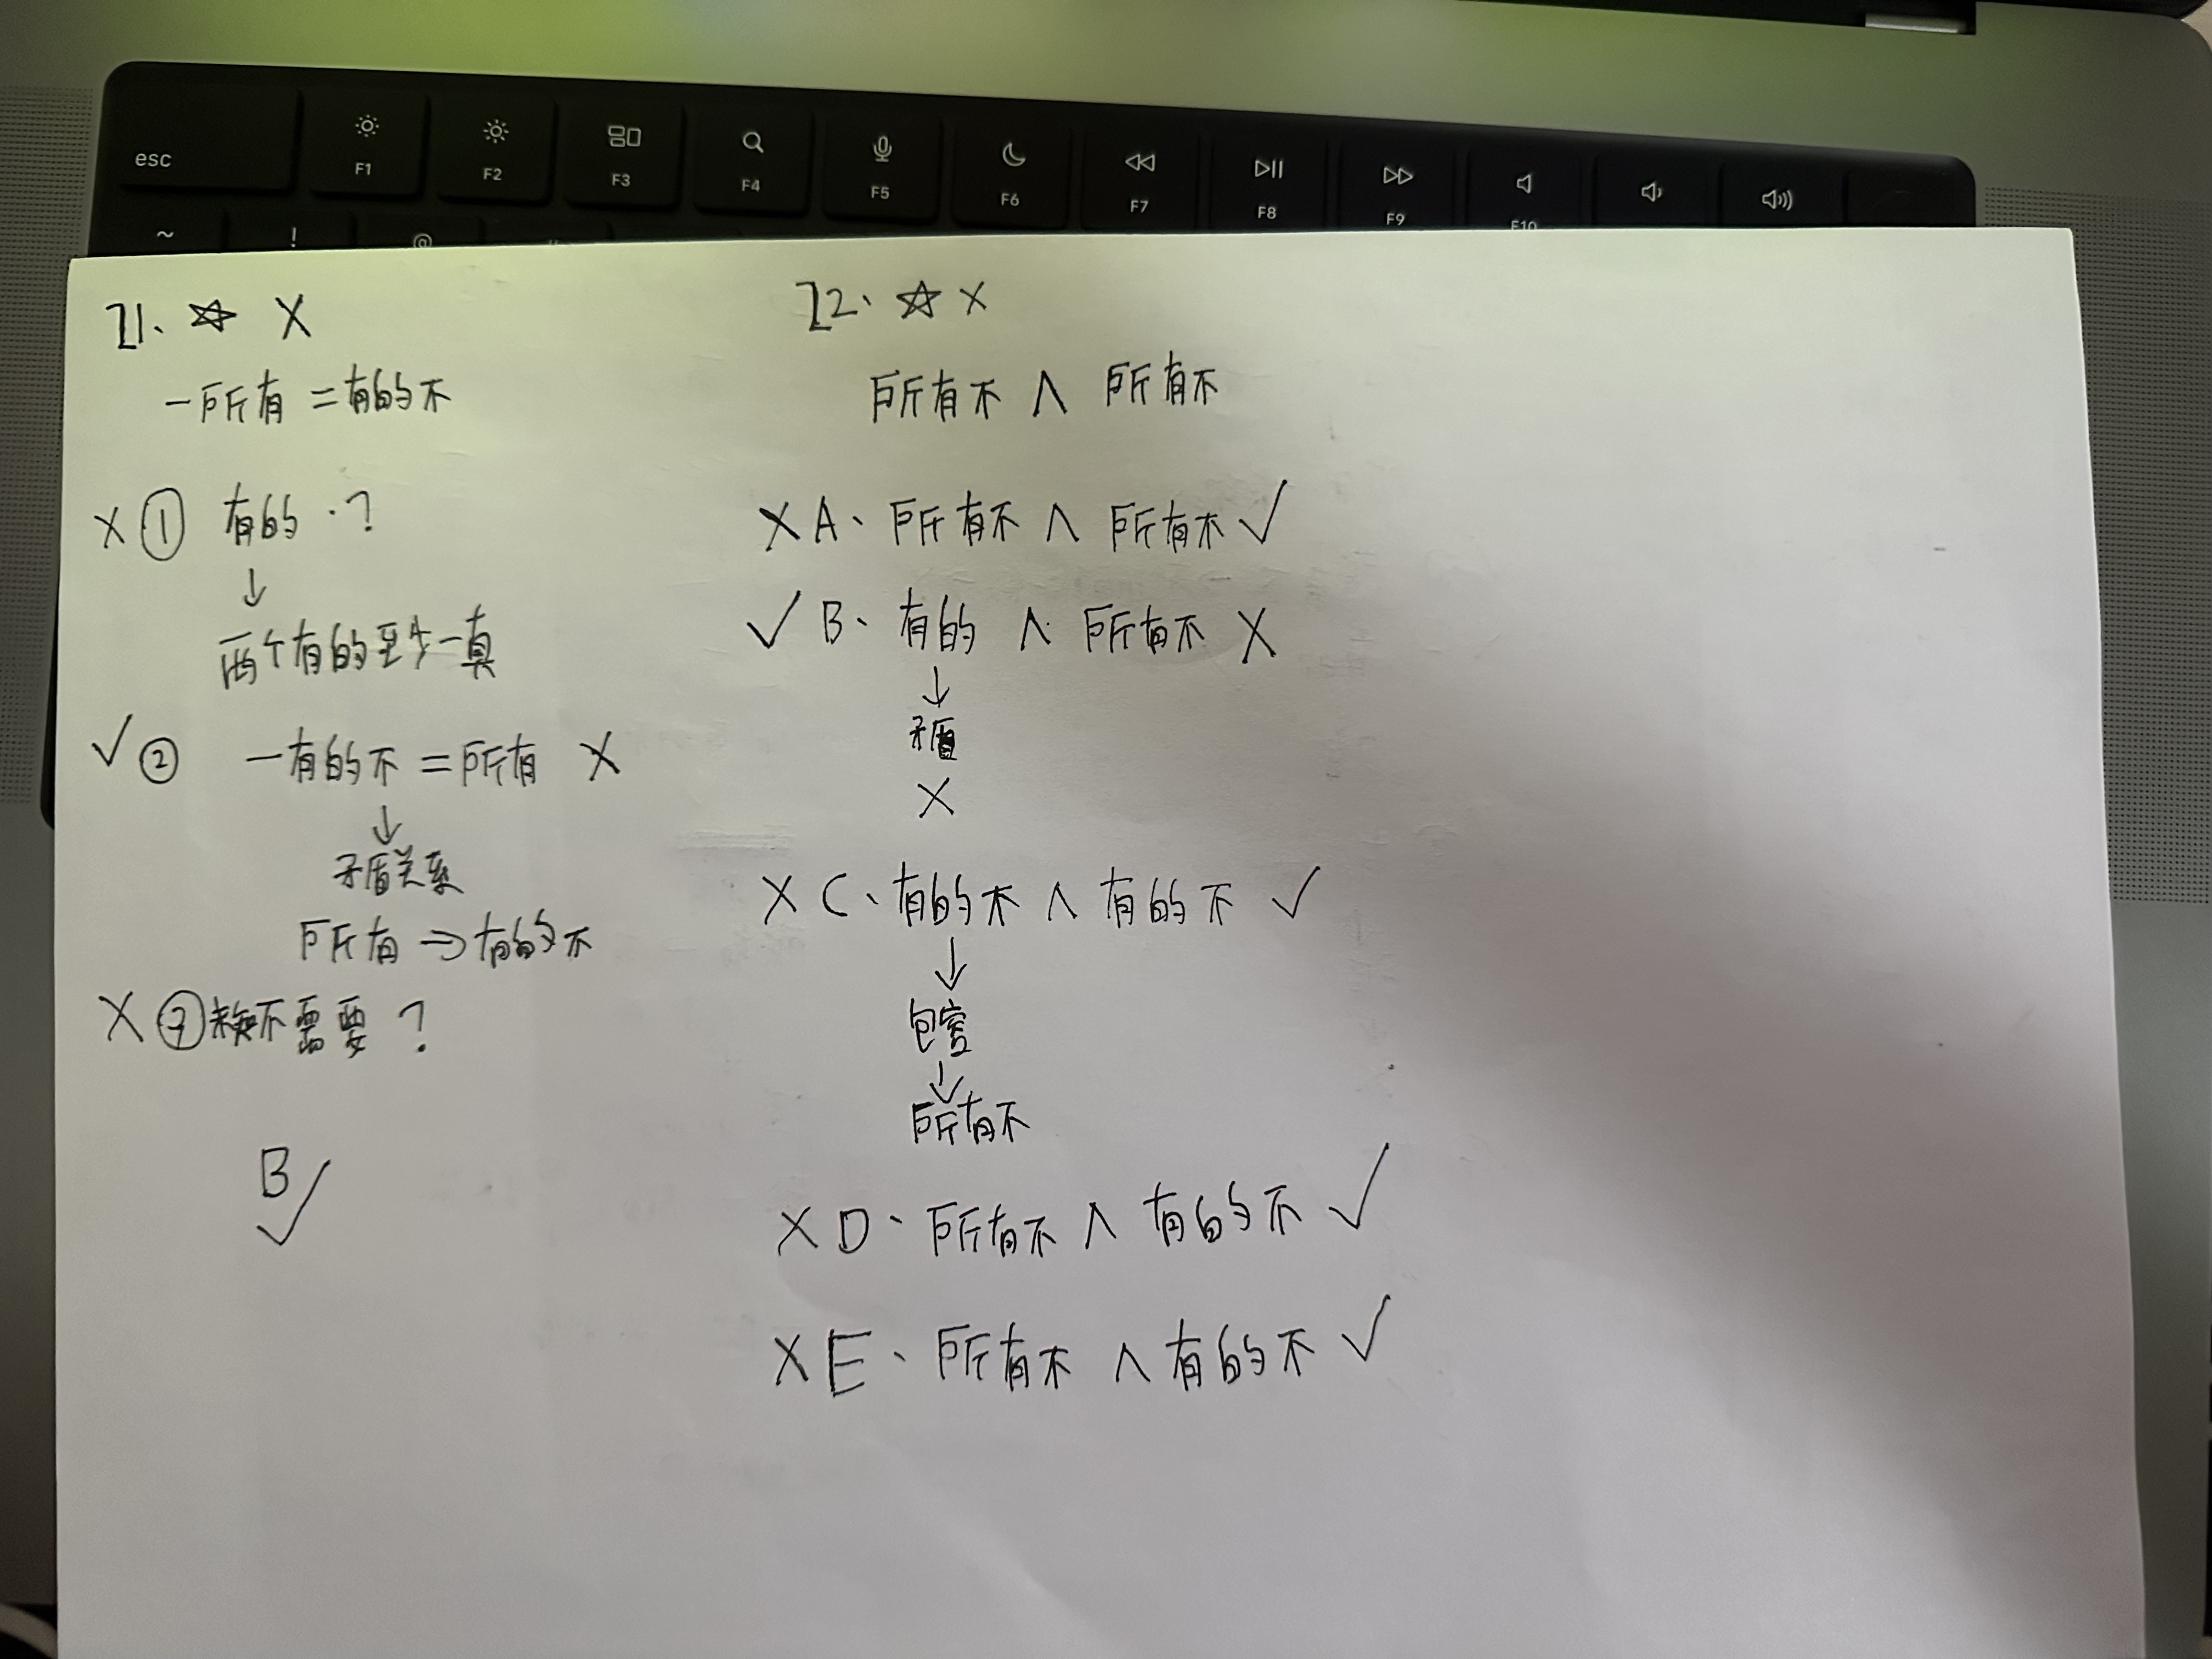 esc
F1
F2
F3
F4
F5
F6
F7
F8
F9
F10
~
!
@
21、☆ X
一所有 = 有的不
X ① 有的 · ?
↓
两个有的至少一真
✓ ② 一有的不 = 所有 X
↓
矛盾关系
所有 ⇒ 有的不
X ③ 不需要 ?
B ✓
22、☆ X
所有不 ∧ 所有不
X A、所有不 ∧ 所有不 ✓
✓ B、有的 ∧ 所有不 X
↓
矛盾
X
X C、有的不 ∧ 有的不 ✓
↓
包容
↓
所有不
X D、所有不 ∧ 有的不 ✓
X E、所有不 ∧ 有的不 ✓